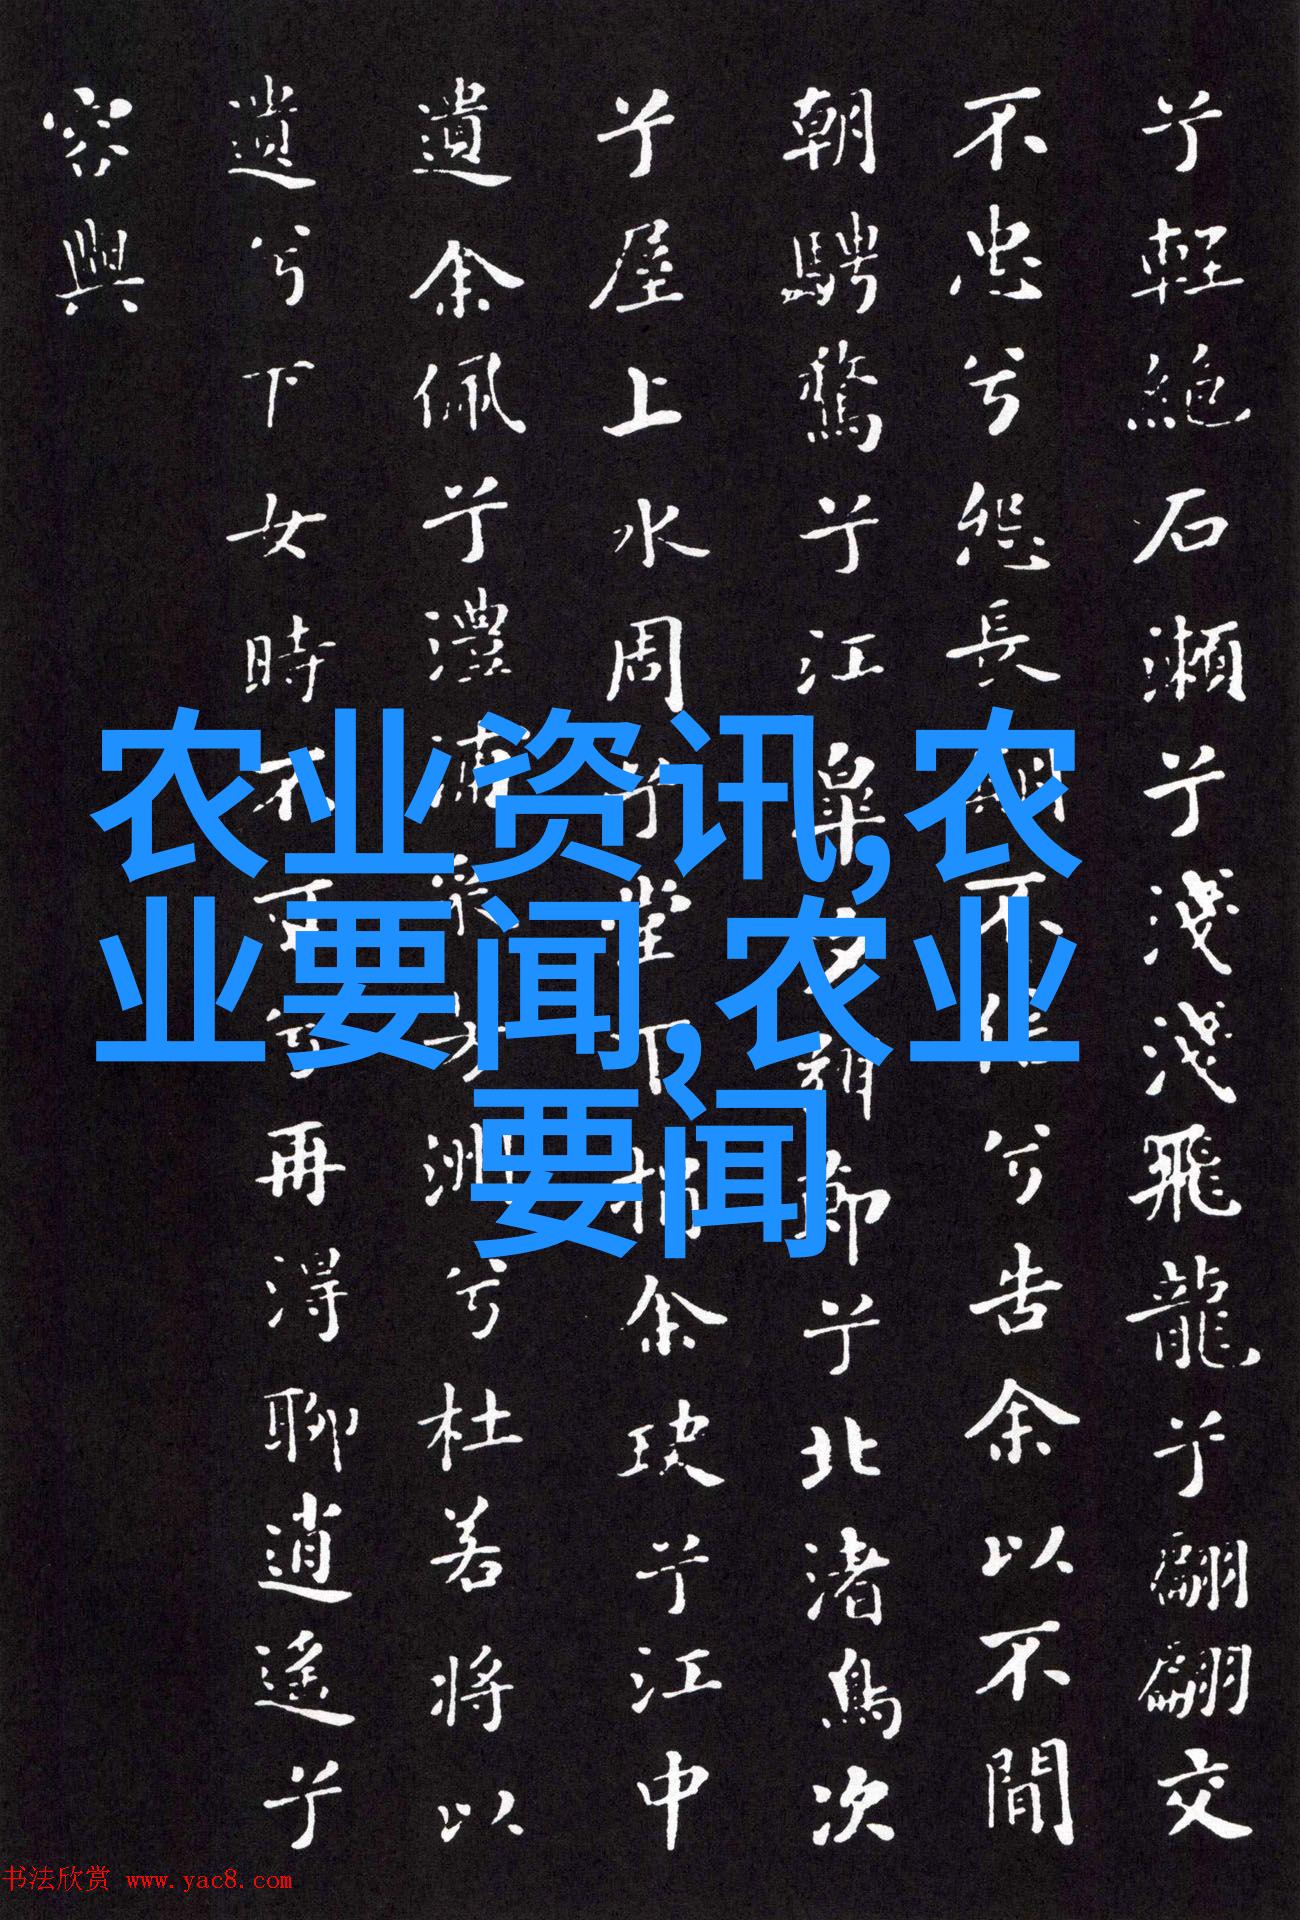 兮輕絶石瀬兮淺淺飛龍兮翩翩交
不忠兮怨長期不信兮告余以不閒
朝騁騖兮江皋夕弭節兮北渚鳥次
兮屋上水周兮堂下捐余玦兮江中
遺余佩兮澧浦采芳洲兮杜若將以
遺兮下女時不可兮再得聊逍遙兮
容與
农业资讯,农
业要闻,农业
要闻
书法欣赏 www.yac8.com